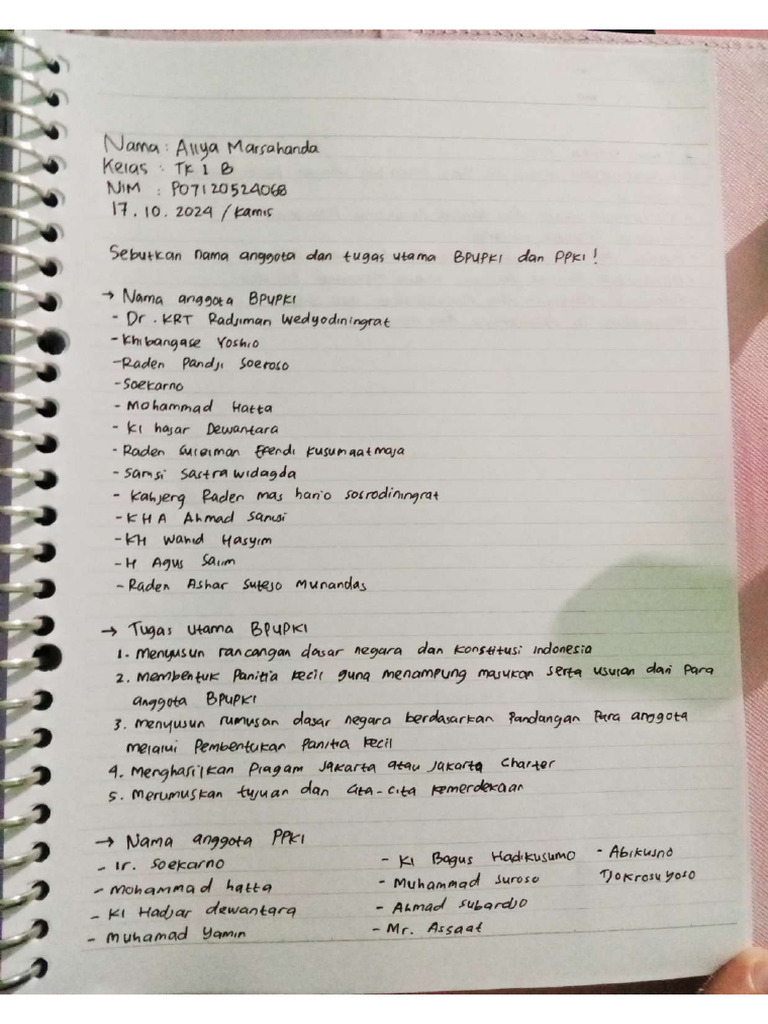 Nama : Aliya Marsahanda
Kelas : TK 1 B
NIM : P07120524068
17.10.2024 / Kamis
Sebutkan nama anggota dan tugas utama BPUPKI dan PPKI !
→ Nama anggota BPUPKI
- Dr. KRT Radjiman Wedyodiningrat
- Khibangase Yoshio
- Raden Pandji Soeroso
- Soekarno
- Mohammad Hatta
- Ki hajar Dewantara
- Raden Suleiman Efendi Kusumaatmaja
- Samsi Sastrawidagda
- Kahjerg Raden mas hario sosrodiningrat
- KHA Ahmad Sanusi
- KH Wahid Hasyim
- H Agus Salim
- Raden Ashar Sutejo Munandas
→ Tugas utama BPUPKI
1. Menyusun rancangan dasar negara dan konstitusi Indonesia
2. Membentuk Panitia kecil guna menampung masukan serta usulan dari para
anggota BPUPKI
3. Menyusun rumusan dasar negara berdasarkan Pandangan Para anggota
melalui Pembentukan Panitia kecil
4. Menghasilkan Piagam Jakarta atau Jakarta Charter
5. Merumuskan tujuan dan cita-cita kemerdekaan
→ Nama anggota PPKI
- Ir. Soekarno
- Mohammad hatta
- Ki Hadjar dewantara
- Muhamad Yamin
- Ki Bagus Hadikusumo
- Muhammad Suroso
- Ahmad Subardjo
- Mr. Assaat
- Abikusno
Tjokrosuyoso